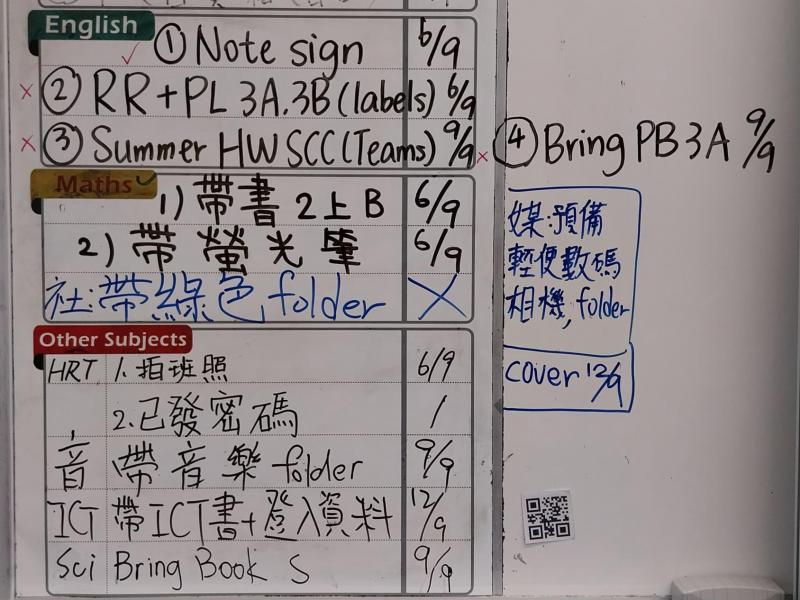 English
① Note sign 6/9
② RR+PL 3A.3B(labels) 6/9
③ Summer HW SCC(Teams) 9/9
④ Bring PB 3A 9/9
Maths
1) 帶書 2上B 6/9
2) 帶螢光筆 6/9
社:帶綠色folder
媒:預備
輕便數碼
相機, folder
cover 12/9
Other Subjects
HRT 1.拍班照 6/9
2.已發密碼 /
音 帶音樂 folder 9/9
ICT 帶ICT書+登入資料 12/9
Sci Bring Book S 9/9